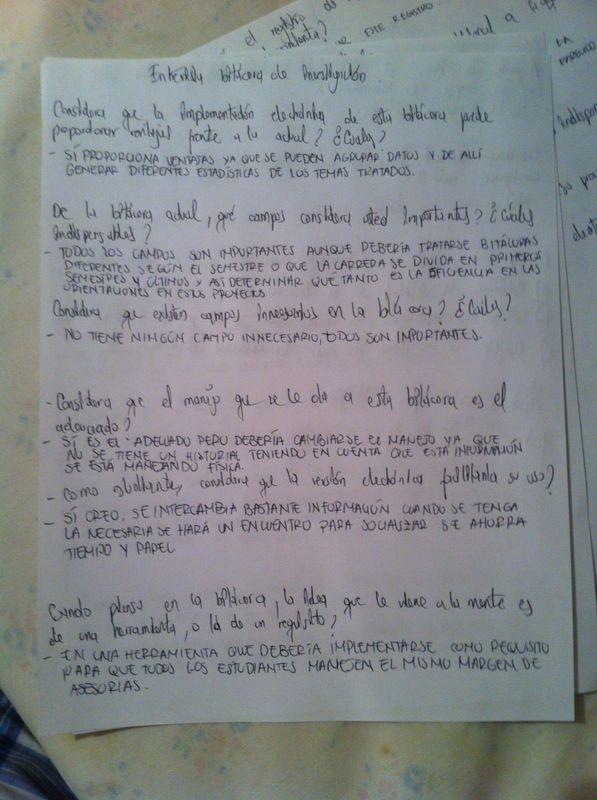 Entrevista bitácora de Investigación.
Considera que la Implementación electrónica de esta bitácora puede
proporcionar ventajas frente a la actual? ¿Cuáles?
- SÍ PROPORCIONA VENTAJAS YA QUE SE PUEDEN AGRUPAR DATOS Y DE ALLÍ
GENERAR DIFERENTES ESTADÍSTICAS DE LOS TEMAS TRATADOS.
De la bitácora actual, qué campos considera usted Importantes? ¿Cuáles
Indispensables?
- TODOS LOS CAMPOS SON IMPORTANTES AUNQUE DEBERÍA TRATARSE BITÁCORAS
DIFERENTES SEGÚN EL SEMESTRE O QUE LA CARRERA SE DIVIDA EN PRIMEROS
SEMESTRES Y ÚLTIMOS Y ASÍ DETERMINAR QUE TANTO ES LA EFICIENCIA EN LAS
ORIENTACIONES EN ESTOS PROYECTOS
Considera que existen campos innecesarios en la bitácora? ¿Cuáles?
- NO TIENE NINGÚN CAMPO INNECESARIO, TODOS SON IMPORTANTES.
- Considera que el manejo que se le da a esta bitácora es el
adecuado?
- SÍ ES EL ADECUADO PERO DEBERÍA CAMBIARSE EL MANEJO YA QUE
NO SE TIENE UN HISTORIAL TENIENDO EN CUENTA QUE ESTA INFORMACIÓN
SE ESTÁ MANEJANDO FÍSICA.
- Como estudiante, considera que la versión electrónica facilitaría su uso?
- SÍ CREO, SE INTERCAMBIA BASTANTE INFORMACIÓN CUANDO SE TENGA
LA NECESARIA SE HARÁ UN ENCUENTRO PARA SOCIALIZAR SE AHORRA
TIEMPO Y PAPEL
Cuando piensa en la bitácora, la Idea que le viene a la mente es
de una herramienta, o la de un requisito?
- EN UNA HERRAMIENTA QUE DEBERÍA IMPLEMENTARSE COMO REQUISITO
PARA QUE TODOS LOS ESTUDIANTES MANEJEN EL MISMO MARGEN DE
ASESORIAS.
el registro de
ESTE REGISTRO
LA